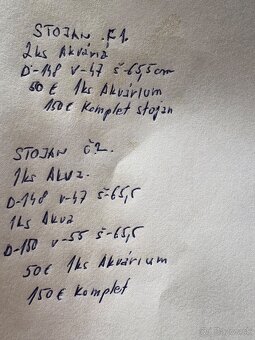 STOJAN č1.
2ks Akvária
D-148 v-47 š-65,5cm
50 € 1ks Akvárium
150€ Komplet stojan
STOJAN č2.
1ks Akva.
D-148 v-47 š-65,5
1ks Akva
D-150 v-55 š-65,5
50€ 1ks Akvárium
150€ Komplet